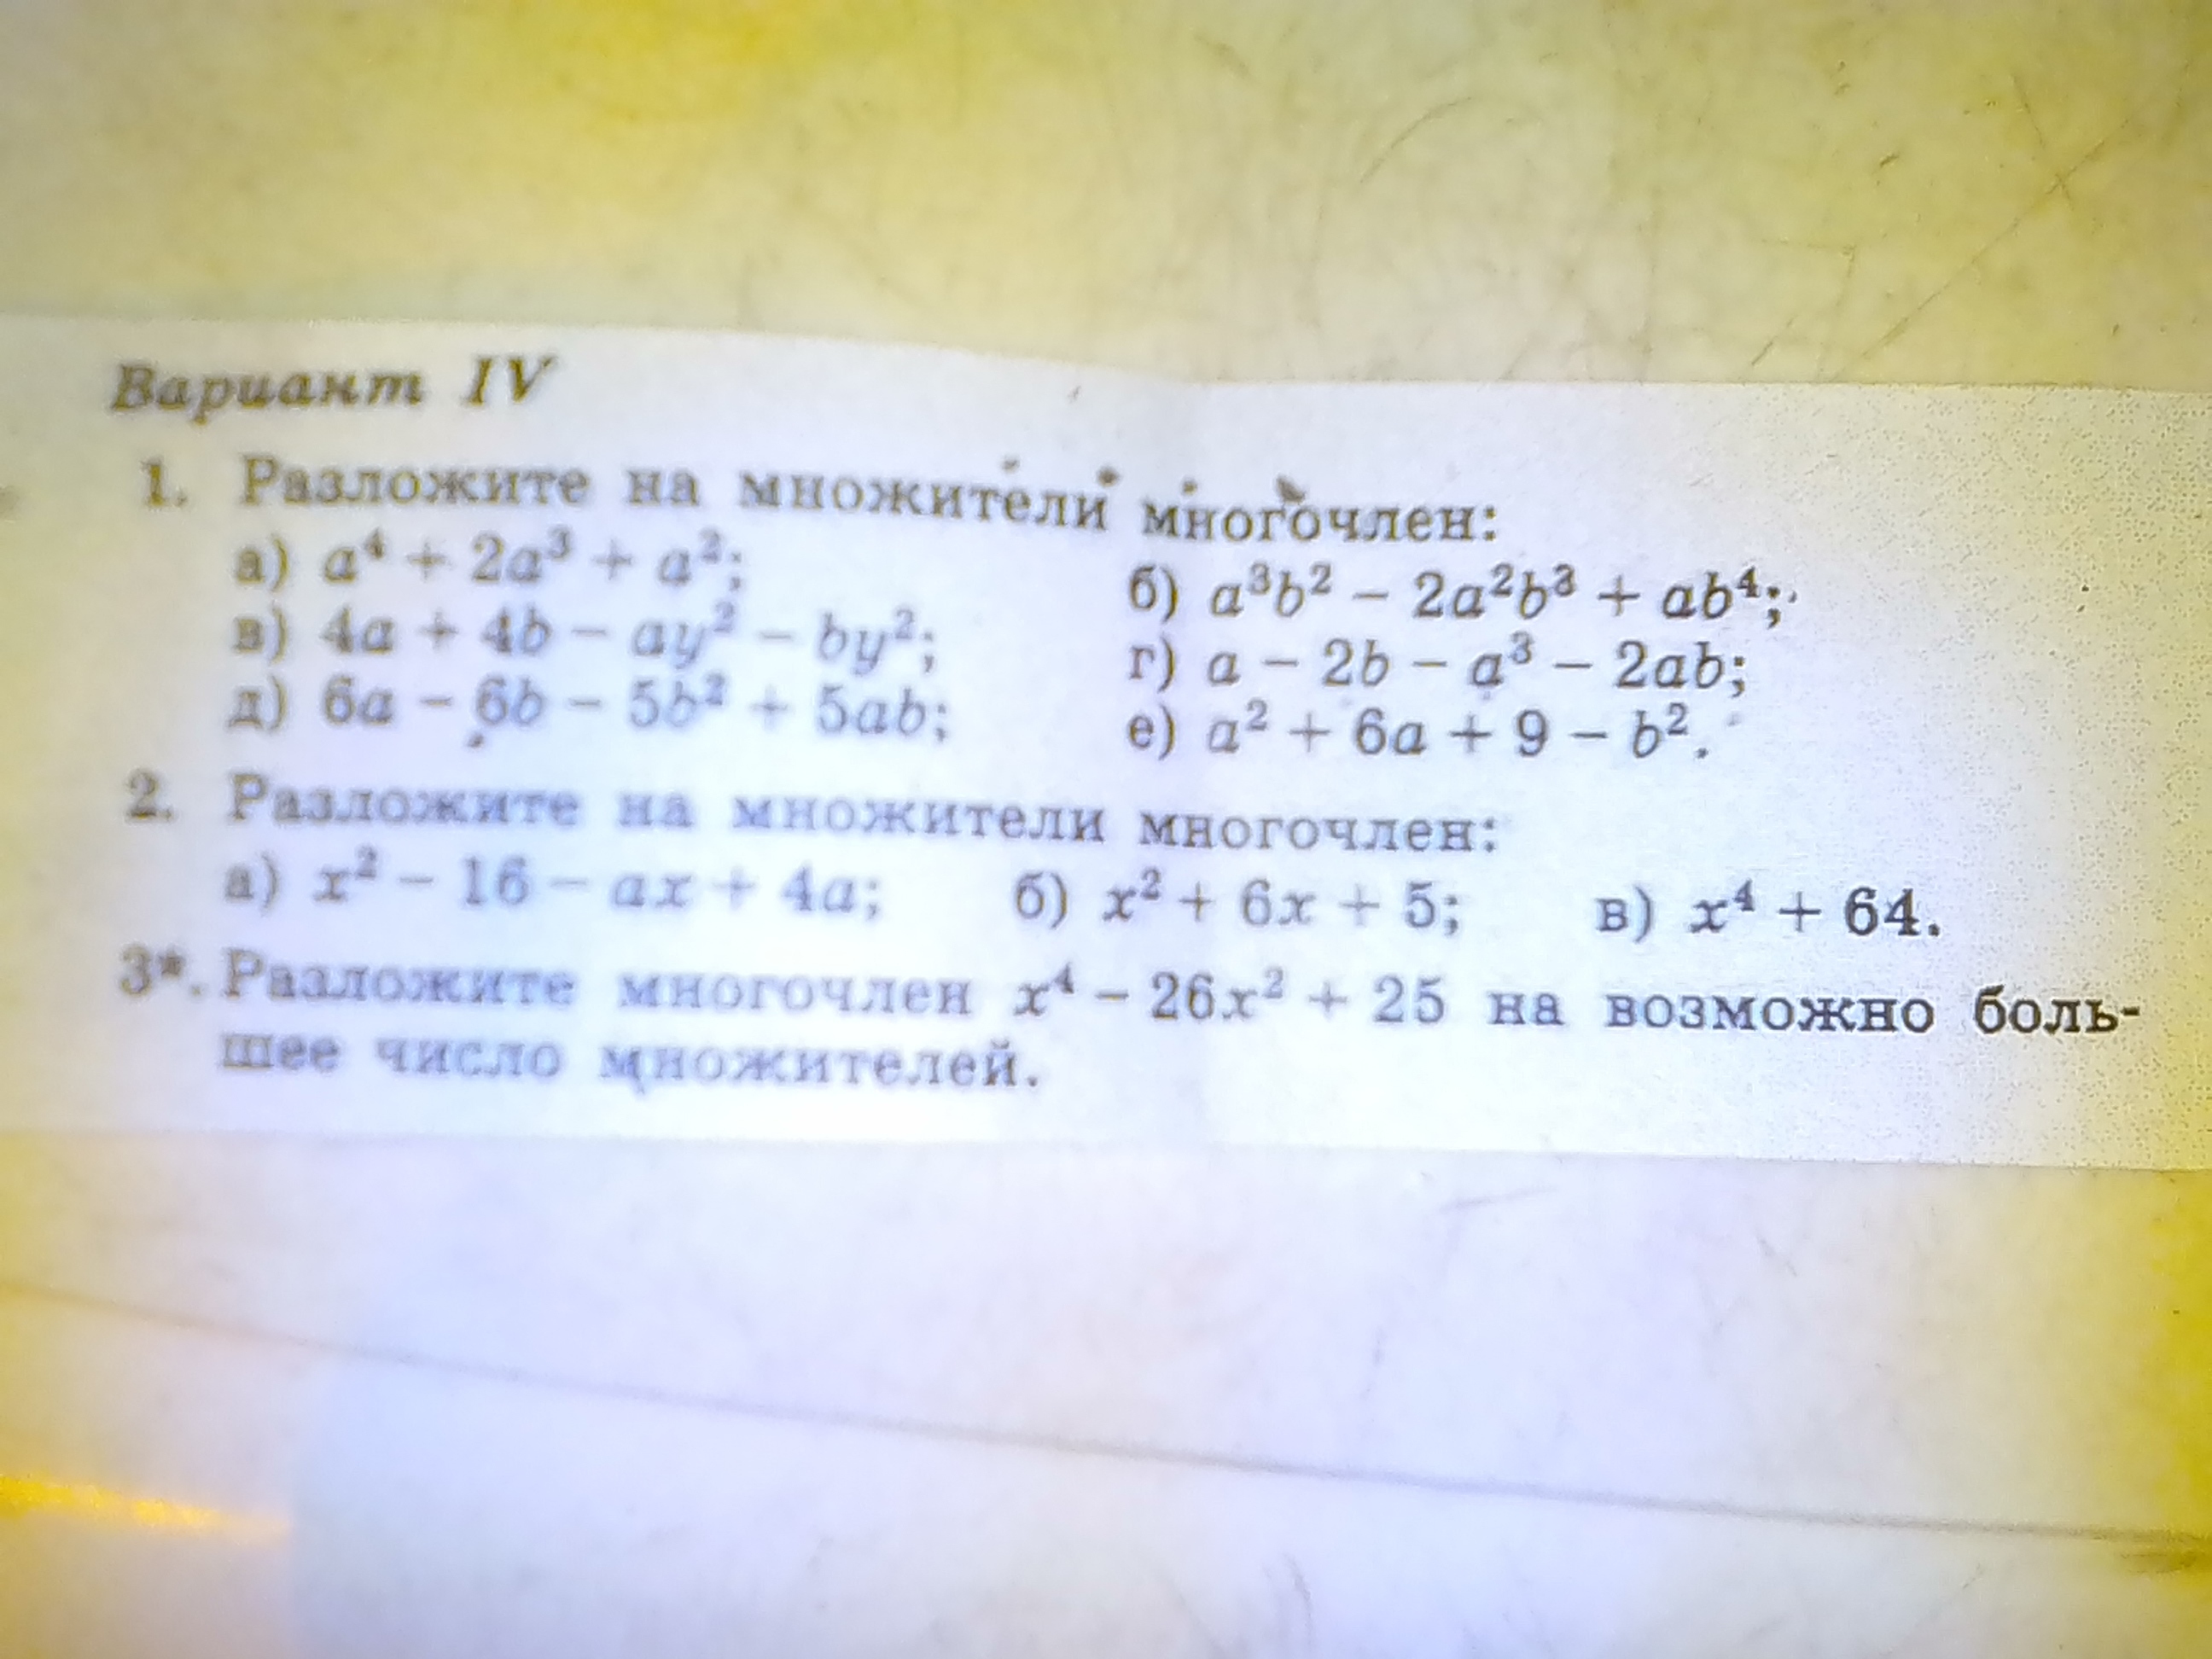 Вариант IV
1. Разложите на множители многочлен:
а) a⁴ + 2a³ + a²; б) a³b² − 2a²b³ + ab⁴;
в) 4a + 4b − ay² − by²; г) a − 2b − a³ − 2ab;
д) 6a − 6b − 5b² + 5ab; е) a² + 6a + 9 − b².
2. Разложите на множители многочлен:
а) x² − 16 − ax + 4a; б) x² + 6x + 5; в) x⁴ + 64.
3*. Разложите многочлен x⁴ − 26x² + 25 на возможно боль-
шее число множителей.